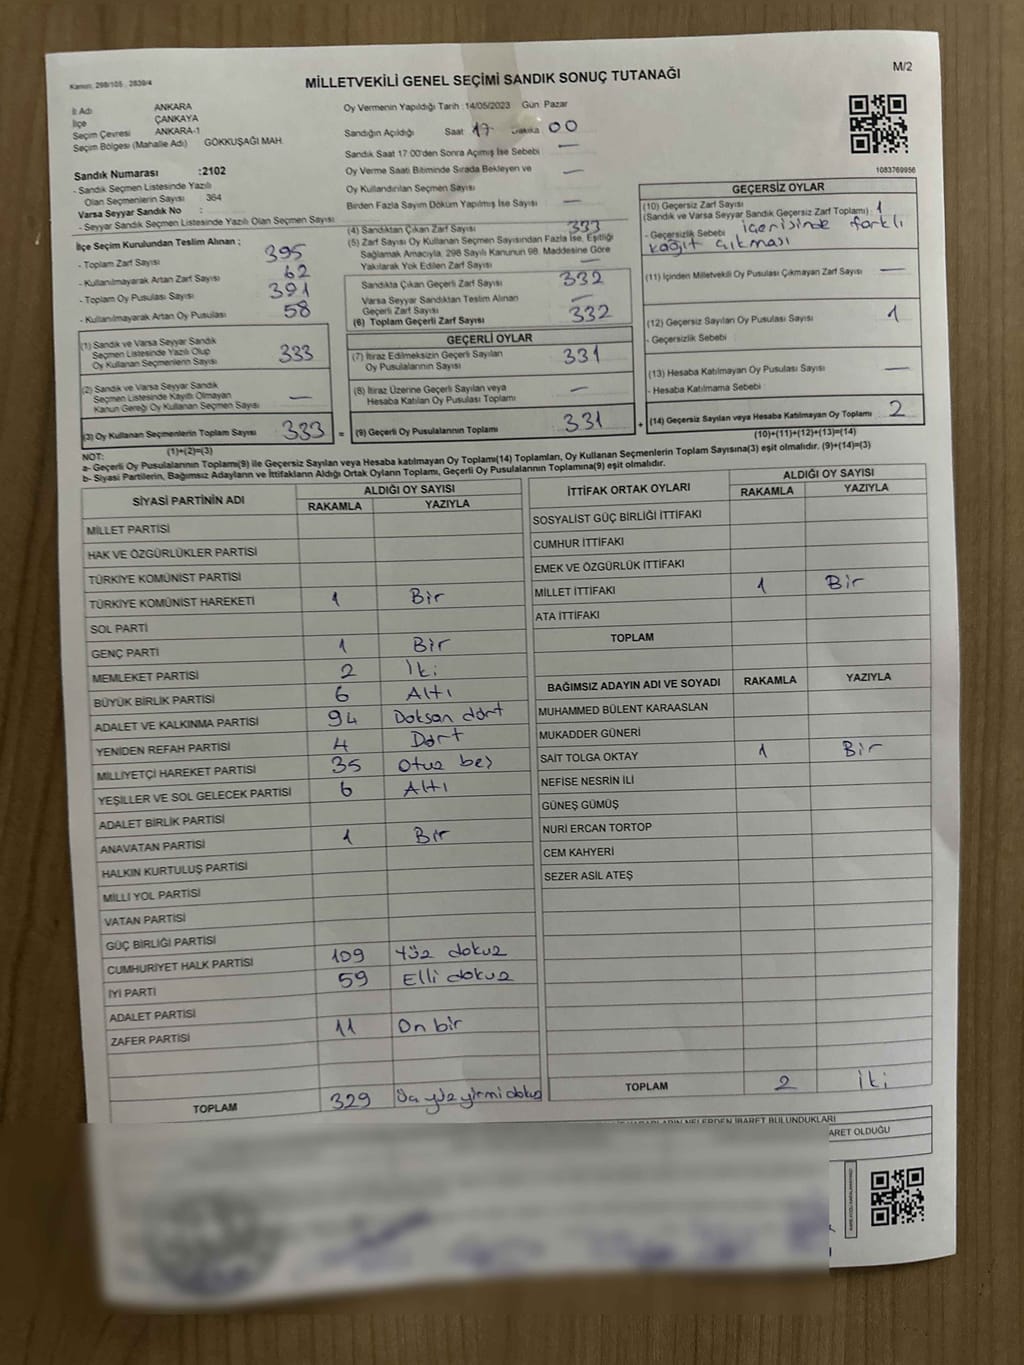 Kanun: 298/105 2839/4
MİLLETVEKİLİ GENEL SEÇİMİ SANDIK SONUÇ TUTANAĞI
M/2
İl Adı ANKARA
İlçe ÇANKAYA
Seçim Çevresi ANKARA-1
Seçim Bölgesi (Mahalle Adı) GÖKKUŞAĞI MAH.
Sandık Numarası :2102
- Sandık Seçmen Listesinde Yazılı
Olan Seçmenlerin Sayısı : 364
Varsa Seyyar Sandık No :
- Seyyar Seçmen Listesinde Yazılı Olan Seçmen Sayısı
İlçe Seçim Kurulundan Teslim Alınan ;
- Toplam Zarf Sayısı 395
- Kullanılmayarak Artan Zarf Sayısı 62
- Toplam Oy Pusulası Sayısı 391
- Kullanılmayarak Artan Oy Pusulası 58
(1) Sandık ve Varsa Seyyar Sandık
Seçmen Listesinde Yazılı Olup
Oy Kullanan Seçmenlerin Sayısı 333
(2) Sandık ve Varsa Seyyar Sandık
Seçmen Listesinde Kayıtlı Olmayan
Kanun Gereği Oy Kullanan Seçmen Sayısı —
(3) Oy Kullanan Seçmenlerin Toplam Sayısı 333
(1)+(2)=(3)
Oy Vermenin Yapıldığı Tarih : 14/05/2023 Gün: Pazar
Sandığın Açıldığı Saat 17 Dakika 00
Sandık Saat 17:00'den Sonra Açımış İse Sebebi —
Oy Verme Saati Bitiminde Sırada Bekleyen ve —
Oy Kullandırılan Seçmen Sayısı
Birden Fazla Sayım Döküm Yapılmış İse Sayısı —
(4) Sandıktan Çıkan Zarf Sayısı 333
(5) Zarf Sayısı Oy Kullanan Seçmen Sayısından Fazla İse, Eşitliği
Sağlamak Amacıyla, 298 Sayılı Kanunun 98. Maddesine Göre
Yakılarak Yok Edilen Zarf Sayısı —
Sandıkta Çıkan Geçerli Zarf Sayısı 332
Varsa Seyyar Sandıktan Teslim Alınan
Geçerli Zarf Sayısı —
(6) Toplam Geçerli Zarf Sayısı 332
GEÇERLİ OYLAR
(7) İtiraz Edilmeksizin Geçerli Sayılan
Oy Pusulasının Sayısı 331
(8) İtiraz Üzerine Geçerli Sayılan veya
Hesaba Katılan Oy Pusulası Toplamı —
= (9) Geçerli Oy Pusulalarının Toplamı 331
1083769956
GEÇERSİZ OYLAR
(10) Geçersiz Zarf Sayısı
(Sandık ve Varsa Seyyar Sandık Geçersiz Zarf Toplamı) 1
- Geçersizlik Sebebi içerisinde farklı
kağıt çıkması
(11) İçinden Milletvekili Oy Pusulası Çıkmayan Zarf Sayısı —
(12) Geçersiz Sayılan Oy Pusulası Sayısı 1
- Geçersizlik Sebebi
(13) Hesaba Katılmayan Oy Pusulası Sayısı —
- Hesaba Katılmama Sebebi
+ (14) Geçersiz Sayılan veya Hesaba Katılmayan Oy Toplamı 2
(10)+(11)+(12)+(13)=(14)
NOT:
a- Geçerli Oy Pusulalarının Toplamı(9) ile Geçersiz Sayılan veya Hesaba katılmayan Oy Toplamı(14) Toplamları, Oy Kullanan Seçmenlerin Toplam Sayısına(3) eşit olmalıdır. (9)+(14)=(3)
b- Siyasi Partilerin, Bağımsız Adayların ve İttifakların Aldığı Ortak Oyların Toplamı, Geçerli Oy Pusulalarının Toplamına(9) eşit olmalıdır.
SİYASİ PARTİNİN ADI ALDIĞI OY SAYISI
RAKAMLA YAZIYLA
MİLLET PARTİSİ
HAK VE ÖZGÜRLÜKLER PARTİSİ
TÜRKİYE KOMÜNİST PARTİSİ
TÜRKİYE KOMÜNİST HAREKETİ 1 Bir
SOL PARTİ
GENÇ PARTİ 1 Bir
MEMLEKET PARTİSİ 2 İki
BÜYÜK BİRLİK PARTİSİ 6 Altı
ADALET VE KALKINMA PARTİSİ 94 Doksan dört
YENİDEN REFAH PARTİSİ 4 Dört
MİLLİYETÇİ HAREKET PARTİSİ 35 otuz beş
YEŞİLLER VE SOL GELECEK PARTİSİ 6 Altı
ADALET BİRLİK PARTİSİ
ANAVATAN PARTİSİ 1 Bir
HALKIN KURTULUŞ PARTİSİ
MİLLİ YOL PARTİSİ
VATAN PARTİSİ
GÜÇ BİRLİĞİ PARTİSİ
CUMHURİYET HALK PARTİSİ 109 Yüz dokuz
İYİ PARTİ 59 Elli dokuz
ADALET PARTİSİ
ZAFER PARTİSİ 11 On bir
TOPLAM 329 Üç yüz yirmi dokuz
İTTİFAK ORTAK OYLARI ALDIĞI OY SAYISI
RAKAMLA YAZIYLA
SOSYALİST GÜÇ BİRLİĞİ İTTİFAKI
CUMHUR İTTİFAKI
EMEK VE ÖZGÜRLÜK İTTİFAKI
MİLLET İTTİFAKI 1 Bir
ATA İTTİFAKI
TOPLAM
BAĞIMSIZ ADAYIN ADI VE SOYADI RAKAMLA YAZIYLA
MUHAMMED BÜLENT KARAASLAN
MUKADDER GÜNERİ
SAİT TOLGA OKTAY 1 Bir
NEFİSE NESRİN İLİ
GÜNEŞ GÜMÜŞ
NURİ ERCAN TORTOP
CEM KAHYERİ
SEZER ASİL ATEŞ
TOPLAM 2 İki
NELERDEN İBARET BULUNDUKLARI
ARET OLDUĞU